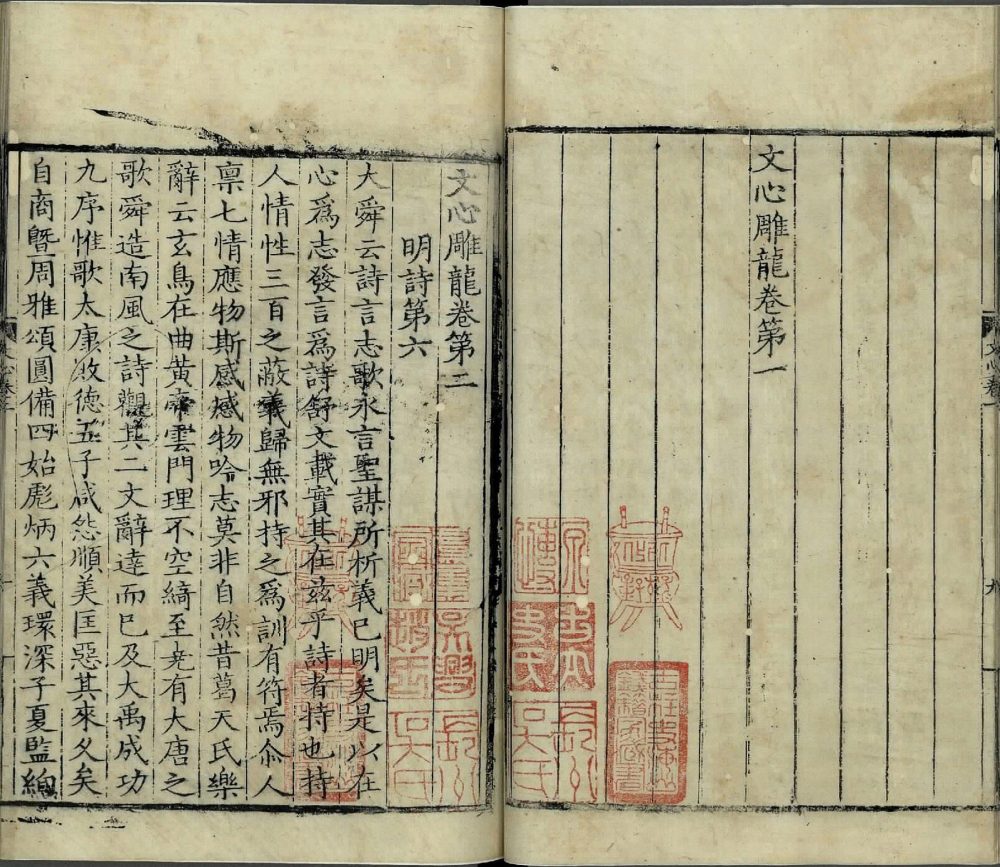 文心雕龍卷第一
文心雕龍卷第二
明詩第六
大舜云詩言志歌永言聖謀所析義已明矣是以在
心爲志發言爲詩舒文載實其在兹乎詩者持也持
人情性三百之蔽義歸無邪持之爲訓有符焉尒人
禀七情應物斯感感物吟志莫非自然昔葛天氏樂
辭云玄鳥在曲黄帝雲門理不空綺至尭有大唐之
歌舜造南風之詩觀其二文辭達而已及大禹成功
九序惟歌太康敗德五子咸怨順美匡惡其來久矣
自商曁周雅頌圓備四始彪炳六義環深子夏監絢